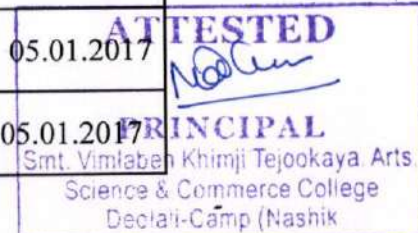 05.01.2017
ATTESTED
05.01.2017
PRINCIPAL
Smt. Vimlaben Khimji Tejookaya. Arts,
Science & Commerce College
Deolali-Camp (Nashik